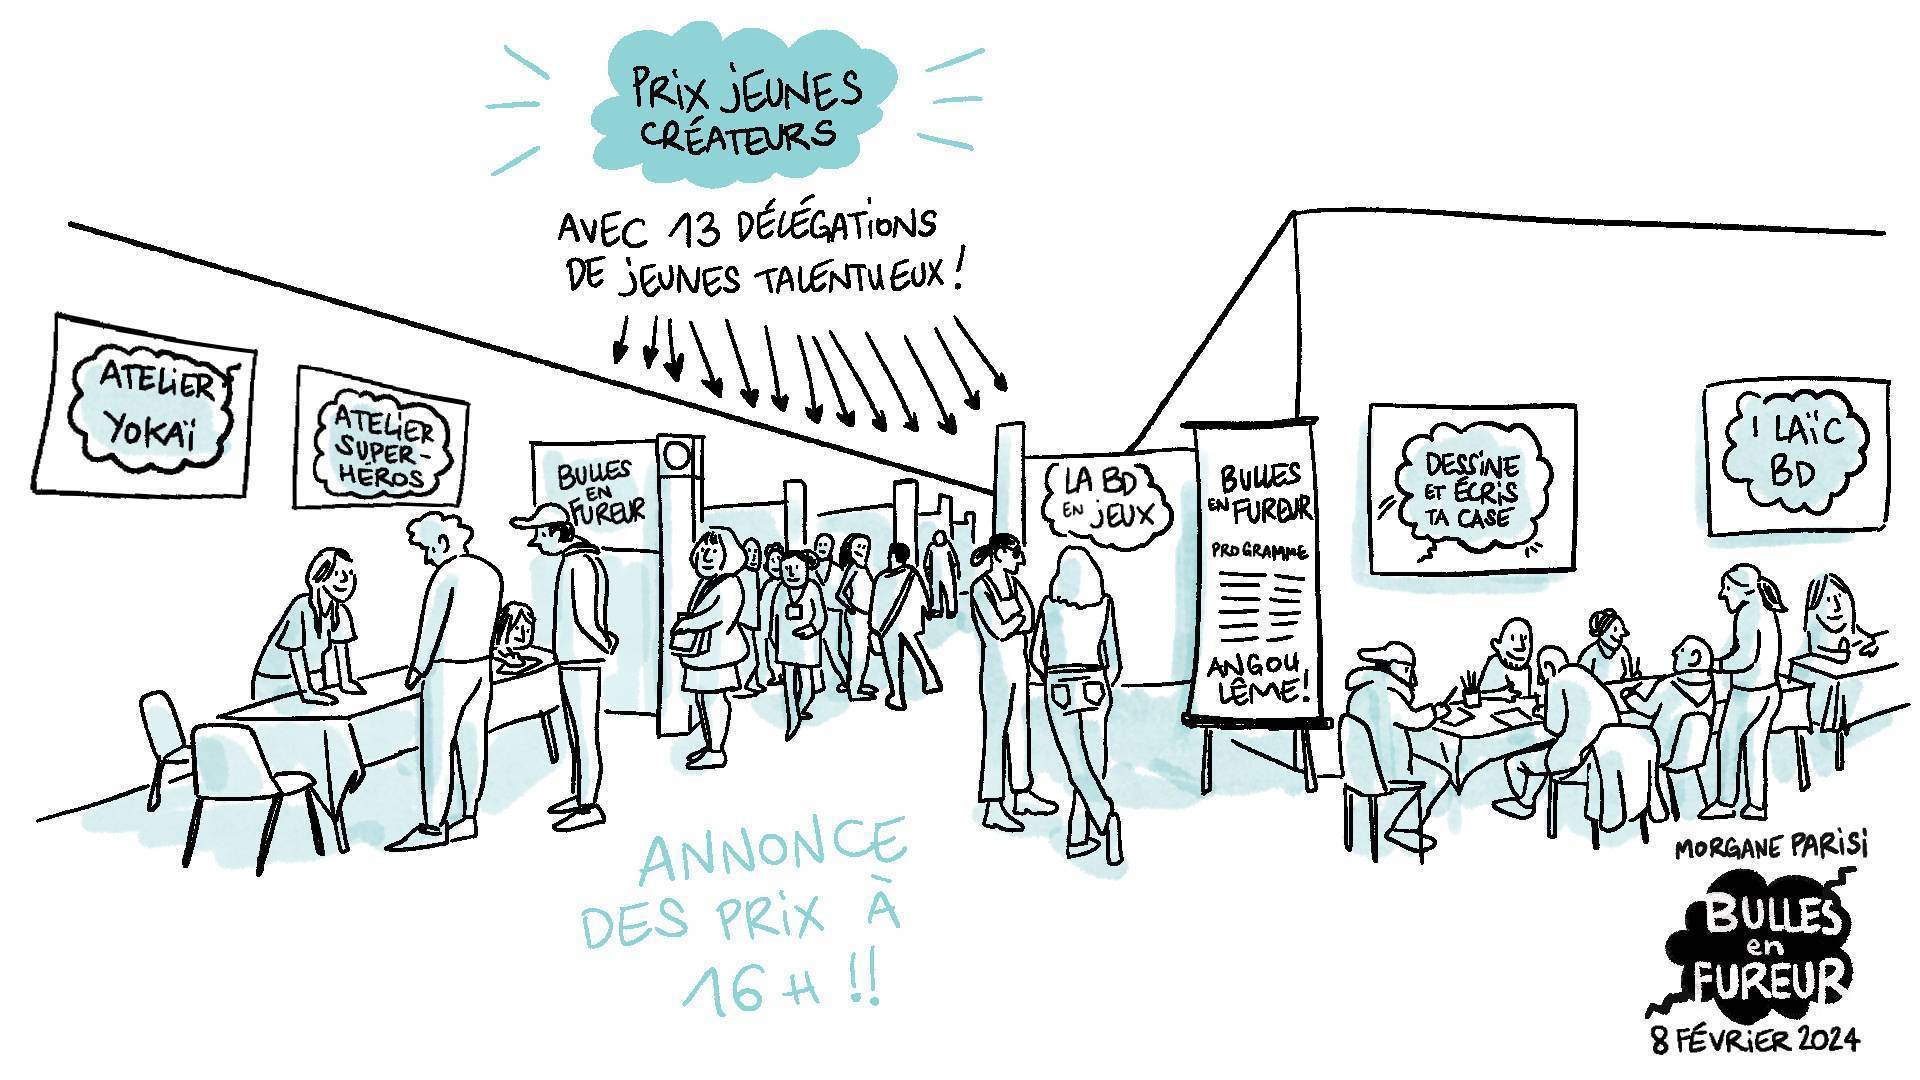 PRIX JEUNES
CRÉATEURS
AVEC 13 DÉLÉGATIONS
DE JEUNES TALENTUEUX !
ATELIER
YOKAÏ
ATELIER
SUPER-
HÉROS
BULLES
EN
FUREUR
LA BD
EN JEUX
BULLES
EN FUREUR
PROGRAMME
ANGOU
LÊME !
DESSINE
ET ÉCRIS
TA CASE
LAÏC
BD
ANNONCE
DES PRIX À
16 H !!
MORGANE PARISI
BULLES
en
FUREUR
8 FÉVRIER 2024